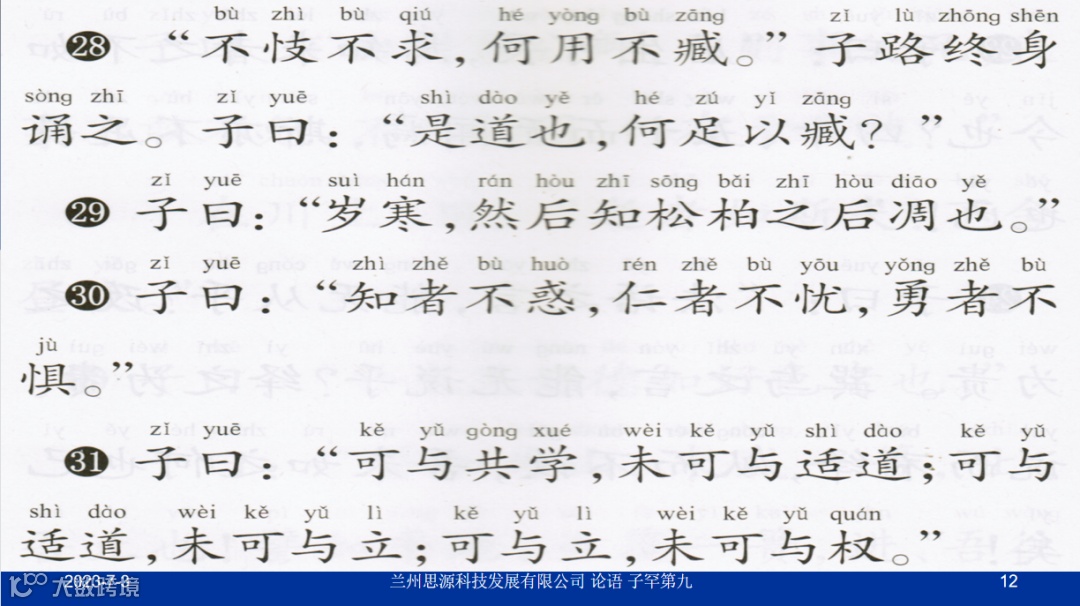 bù zhì bù qiú hé yòng bù zāng zǐ lù zhōng shēn
28 “不忮不求，何用不臧。”子路终身
sòng zhī zǐ yuē shì dào yě hé zú yǐ zāng
诵之。子曰：“是道也，何足以臧？”
zǐ yuē suì hán rán hòu zhī sōng bǎi zhī hòu diāo yě
29 子曰：“岁寒，然后知松柏之后凋也。”
zǐ yuē zhì zhě bù huò rén zhě bù yōu yǒng zhě bù
30 子曰：“知者不惑，仁者不忧，勇者不
jù
惧。”
zǐ yuē kě yǔ gòng xué wèi kě yǔ shì dào kě yǔ
31 子曰：“可与共学，未可与适道；可与
shì dào wèi kě yǔ lì kě yǔ lì wèi kě yǔ quán
适道，未可与立；可与立，未可与权。”
兰州思源科技发展有限公司 论语 子罕第九
12
大数跨境